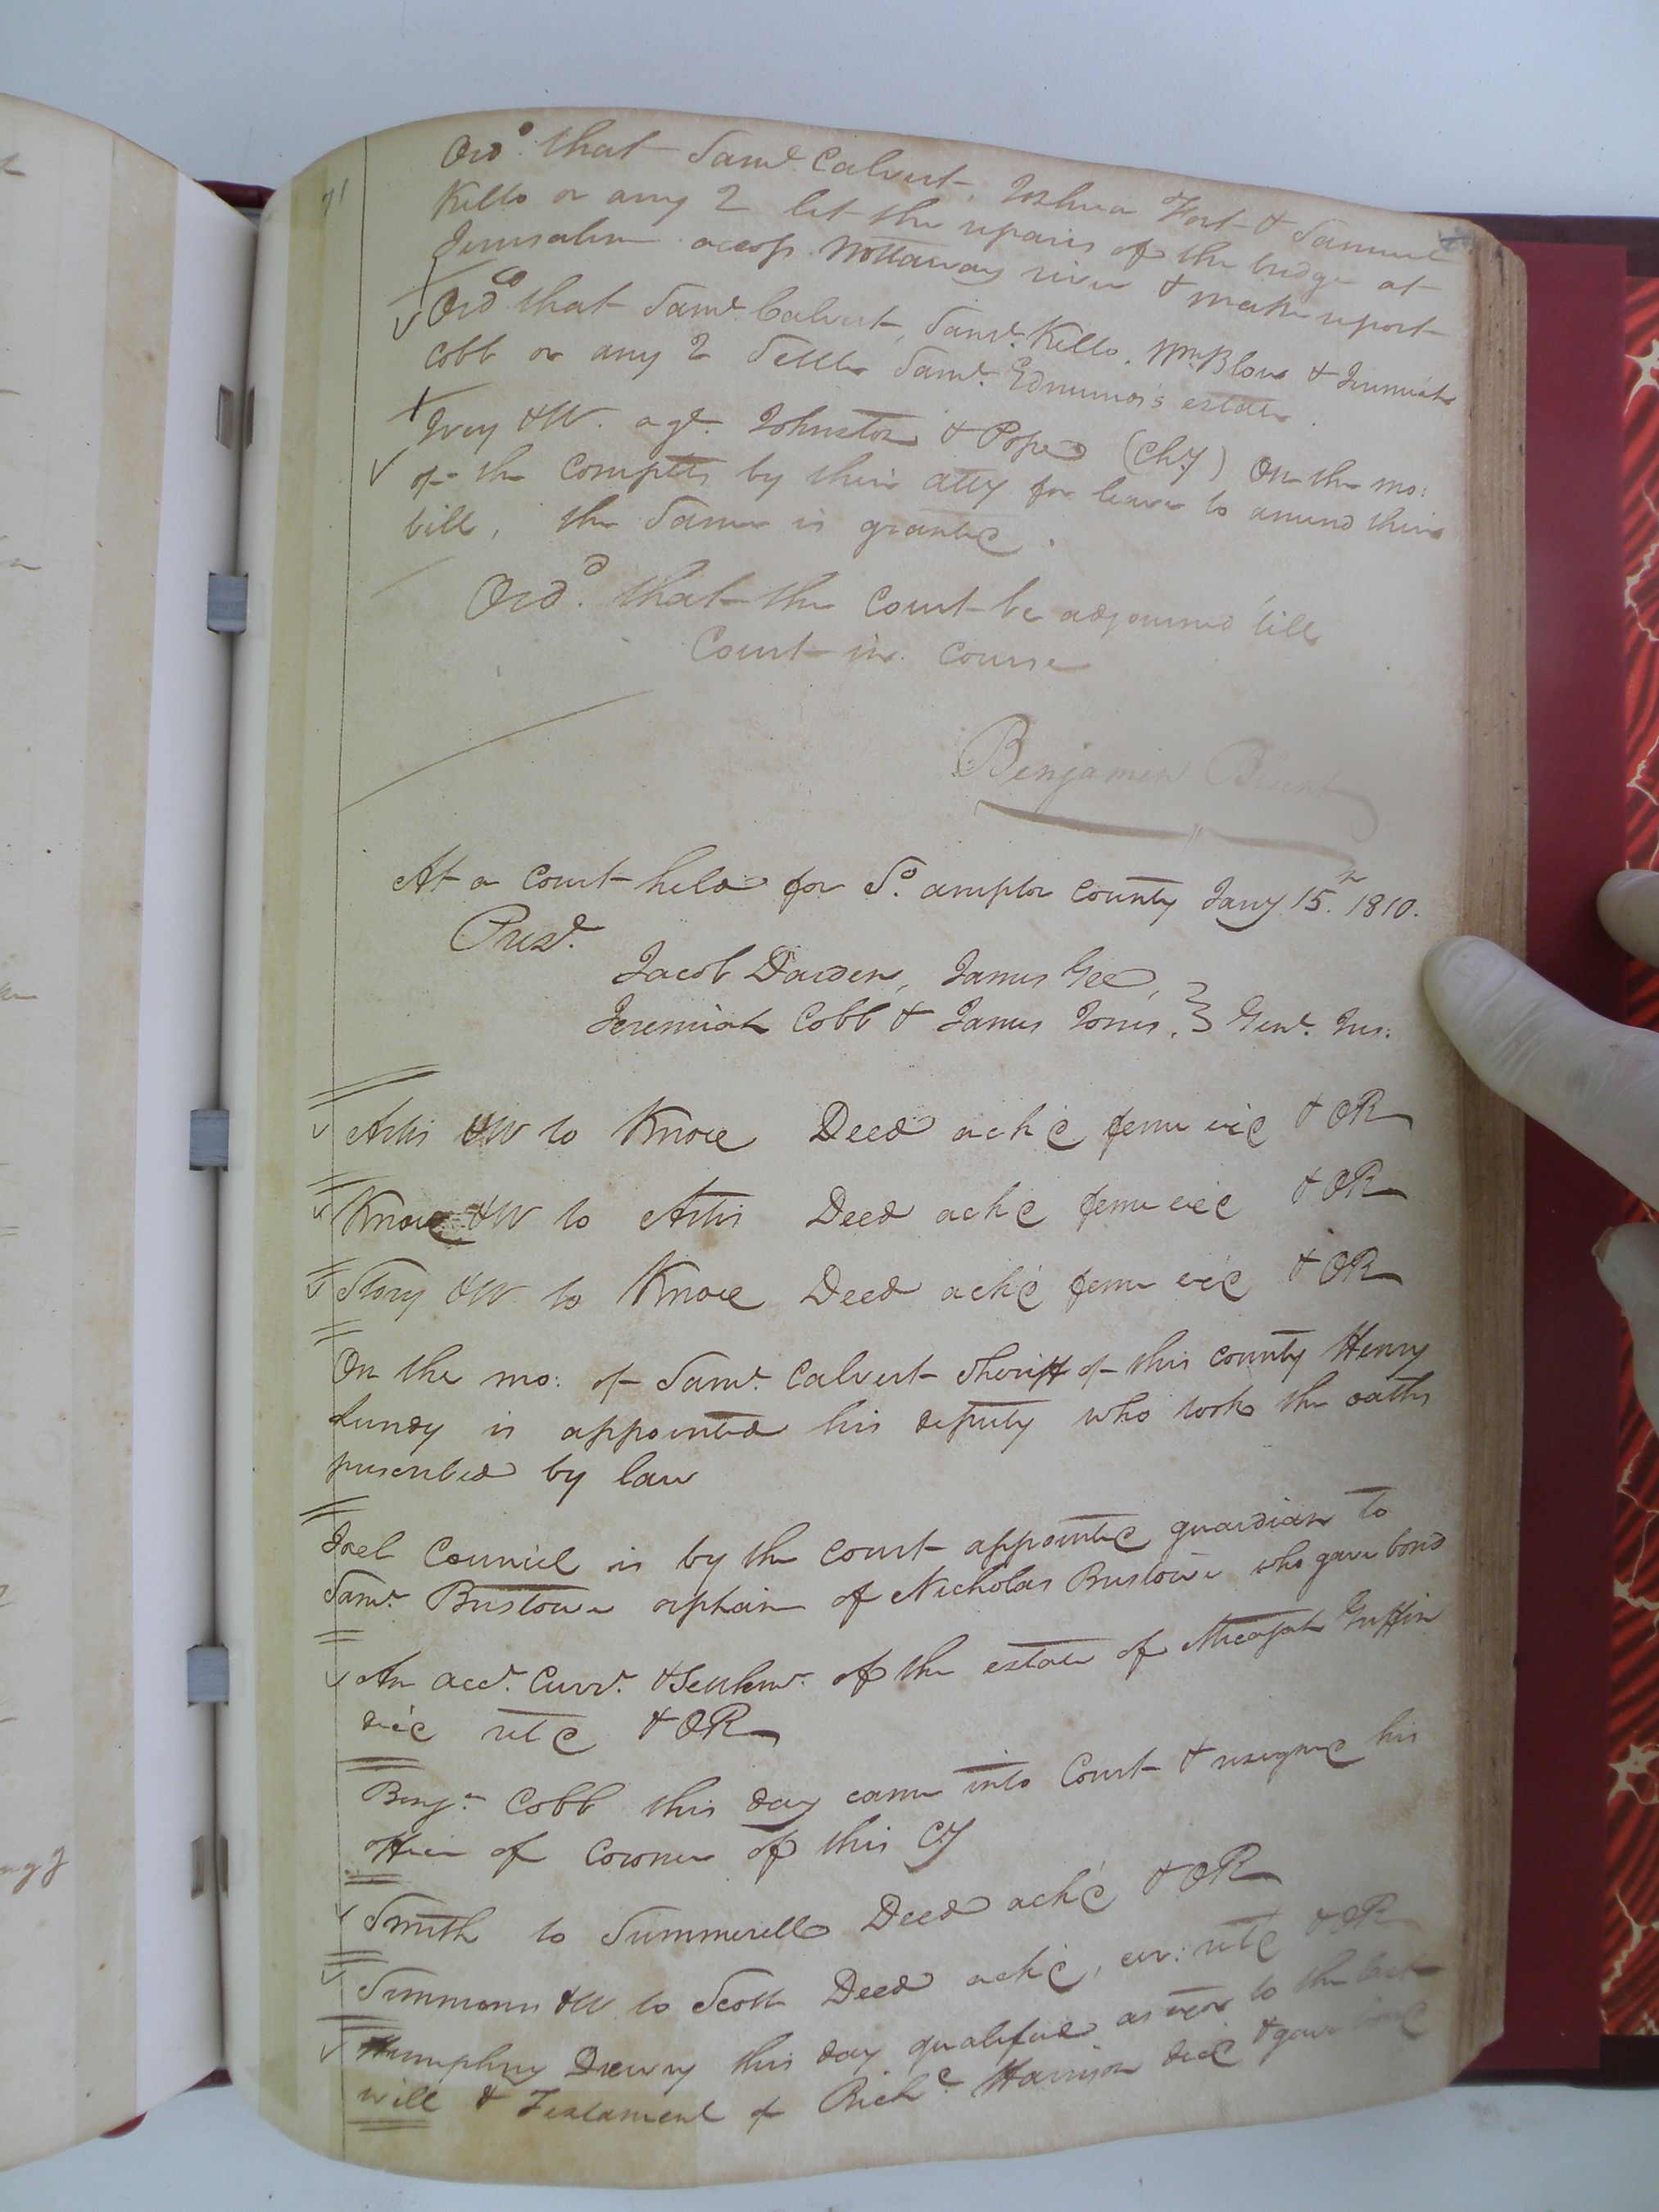 71
Ordd. that Saml. Calvert, Joshua Fort & Samuel
Kello or any 2 let the repairs of the bridge at
Jerusalem across Nottaway river & make report
Ordd. that Saml. Calvert, Saml. Kello, Wm. Blow & Jeremiah
Cobb or any 2 Settle Saml. Edmunds's estate
Ivey & W. agt. Johnston & Pope (Chy) On the mo:
of the complts by their atty for leave to amend their
bill, the Same is granted.
Ordd. that the Court be adjourned till
Court in course
Benjamin Blunt
At a Court held for So. ampton County Jany 15th. 1810.
Presd.
Jacob Darden, James Gee,
Jeremiah Cobb & James Jones. } Gent. Jus:
Artis & W to Knox Deed ackd feme exd & OR
Knox & W to Artis Deed ackd feme exd & OR
Story & W to Knox Deed ackd feme exd & OR
On the mo: of Saml. Calvert Sheriff of this County Henry
Lundy is appointed his deputy who took the oaths
prescribed by law
Joel Council is by the Court appointed guardian to
Saml. Bristowe orphan of Nicholas Bristowe who gave bond
An acct. Currt. & Settlemt. of the estate of Micajah Griffin
decd retd & OR
Benjn. Cobb this day came into Court & resigned his
office of Coroner of this Cy
Smith to Summerell Deed ackd & OR
Simmons & W to Scott Deed ackd, ex: retd & OR
Humphrey Drewry this day qualified as exor to the last
will & Testament of Richd. Harrison decd & gave bond